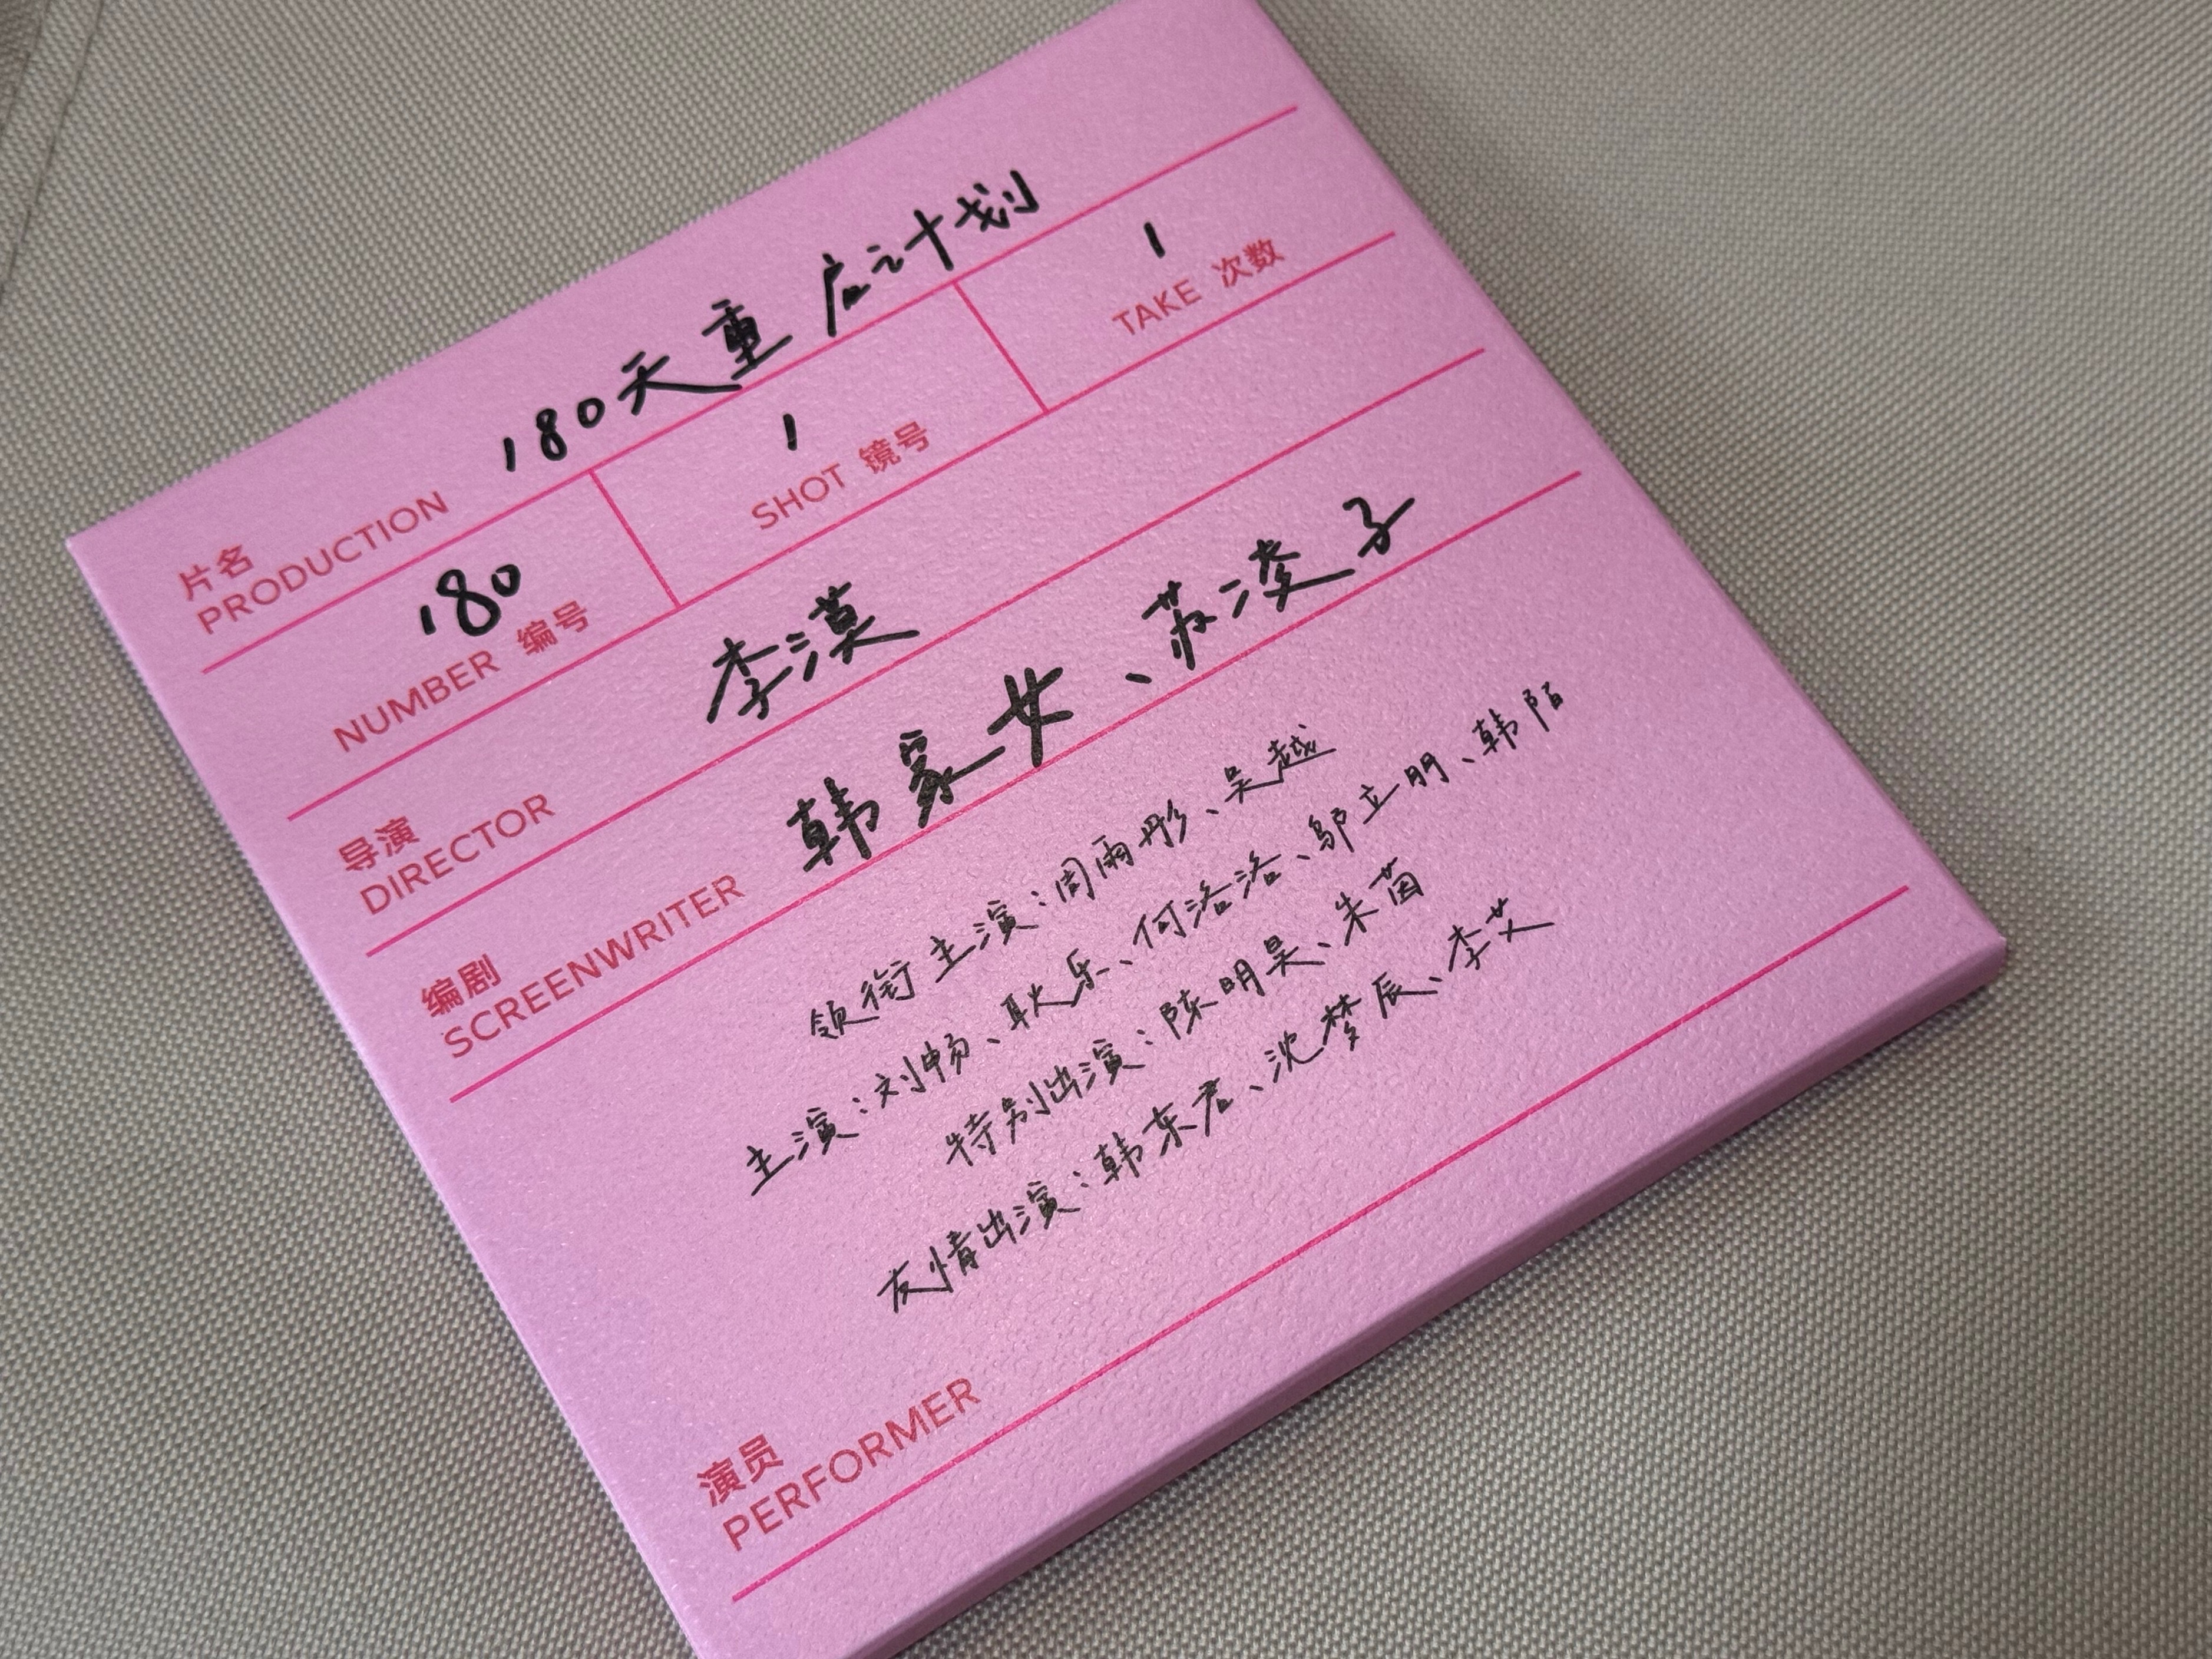 片名 180天重启计划
PRODUCTION
180 1 1
NUMBER 编号 SHOT 镜号 TAKE 次数
导演 李漠
DIRECTOR
编剧 韩家女、苏凌子
SCREENWRITER
领衔主演：周雨彤、吴越
主演：刘畅、耿乐、何洛洛、邬立朋、韩陌
特别出演：陈明昊、朱茵
友情出演：韩东君、沈梦辰、李艾
演员
PERFORMER